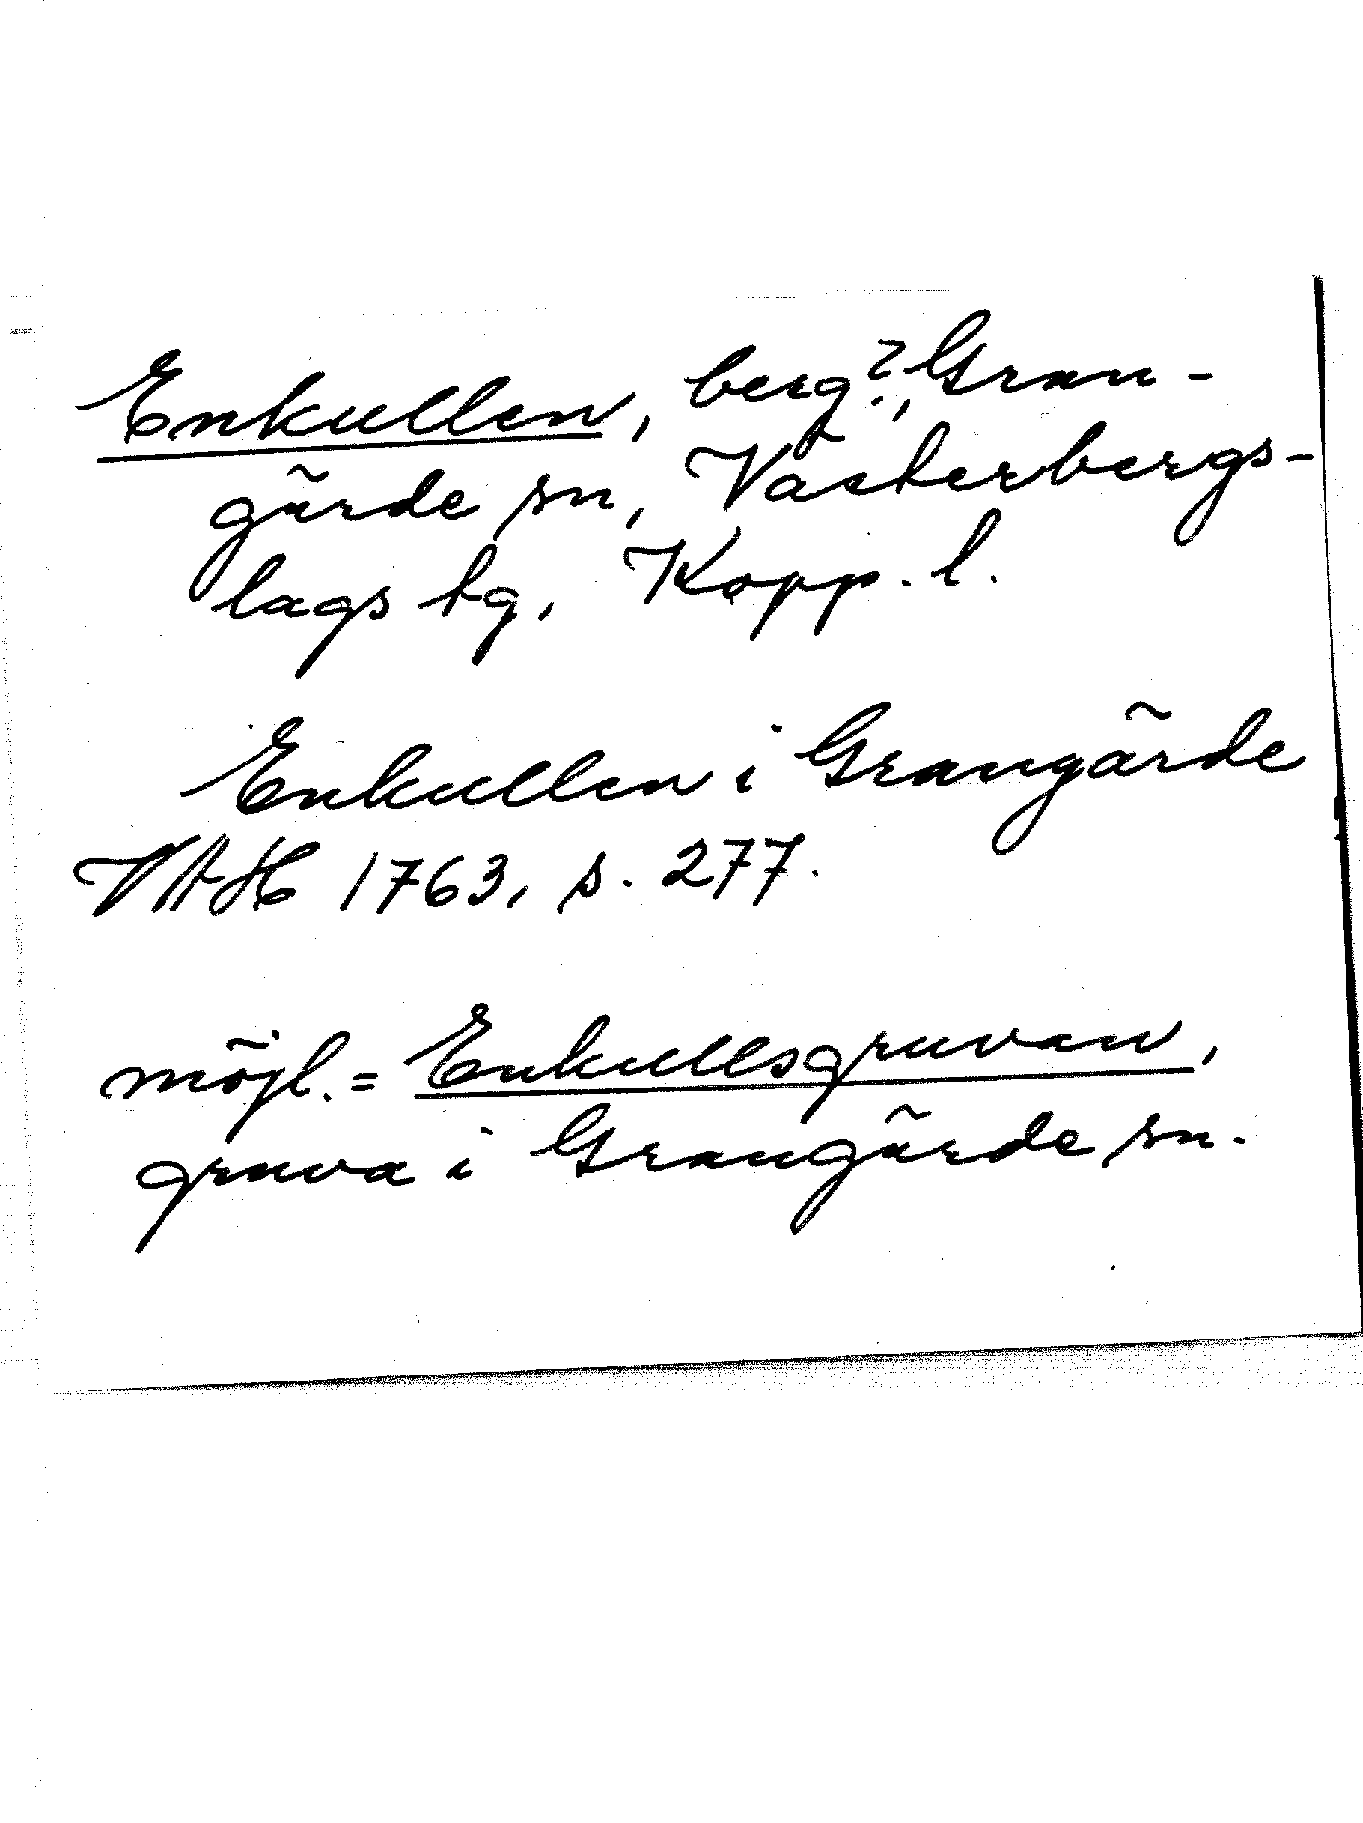 Enkullen, berg?, Gran-
gärde sn, Västerbergs-
lags tg, Kopp. l.
Enkullen i Grangärde
VAH 1763, s. 277.
möjl. = Enkullsgruvan,
gruva i Grangärde sn.